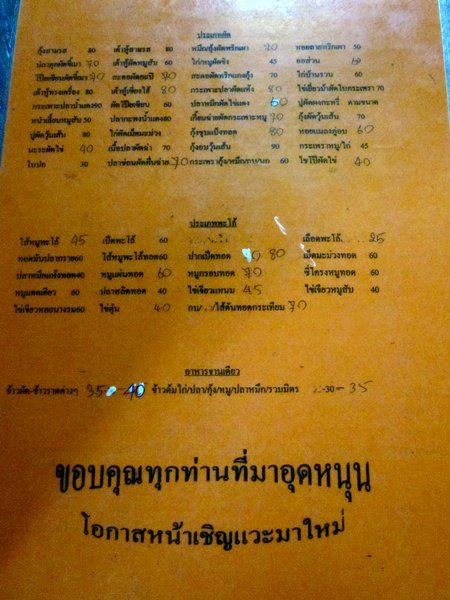 ประเภทผัด
กุ้งสามรส 80 เต้าหู้สามรส 80 หมึก/กุ้งผัดพริกเผา 70 หอยลายพริกเผา 50
ปลาดุกผัดขี้เมา 70 เต้าหู้ผัดหมูสับ 60 ไก่/หมูผัดขิง 45 ออส่วน 60
โป๊ยเซียนผัดขี้เมา 70 สะตอผัดกะปิ 70 สะตอผัดพริกแกงกุ้ง 70 ไก่บ้านรวน 60
เต้าหู้ทรงเครื่อง 80 เต้าหู้เซี่ยงไฮ้ 80 กระเพาะปลาผัดแห้ง 80 ไข่เยี่ยวม้าผัดใบกระเพรา 70
กระเพาะปลาน้ำแดง 90 ผัดโป๊ยเซียน 60 ปลาหมึกผัดไข่แดง 60 ปูผัดผงกะหรี่ ตามขนาด
หน่ำเลี้ยบหมูสับ 50 ปลากะพงน้ำแดง 80 เกี้ยมฉ่ายผัดกระเพาะหมู 70 กุ้งผัดวุ้นเส้น 70
ปูผัดวุ้นเส้น 80 ไก่ผัดเม็ดมะม่วง กุ้งชุบแป้งทอด 80 หอยแมลงภู่อบ 60
มะระผัดไข่ 40 เนื้อปลาผัดฉ่า 70 กุ้งอบวุ้นเส้น 90 กระเพราหมู/ไก่ 45
50 ปลาช่อนผัดคื่นฉ่าย 70 กระเพรากุ้ง/หมึก/ 60 ไชโป๊ผัดไข่ 40
ประเภทพะโล้
ไส้หมูพะโล้ 45 เป็ดพะโล้ 60 เลือดพะโล้ 25
ทอดมันปลากราย 60 ไส้หมูพะโล้ทอด 60 ปากเป็ดทอด 80 เม็ดมะม่วงทอด 60
ปลาหมึกแห้งทอด 40 หมูแผ่นทอด 60 หมูกรอบทอด 70 ซี่โครงหมูทอด 60
หมูแดดเดียว 60 ปลาสลิดทอด 40 ไข่เจียวแหนม 45 ไข่เจียวหมูสับ 40
ไข่เจียวหอยนางรม 60 ไข่ตุ๋น 40 กบ/ /ไส้ตันทอดกระเทียม 70
อาหารจานเดียว
ข้าวผัด-ข้าวราดต่างๆ 35-40 ข้าวต้มไก่/ปลา/กุ้ง/หมู/ปลาหมึก/รวมมิตร -30-35
ขอบคุณทุกท่านที่มาอุดหนุน
โอกาสหน้าเชิญแวะมาใหม่